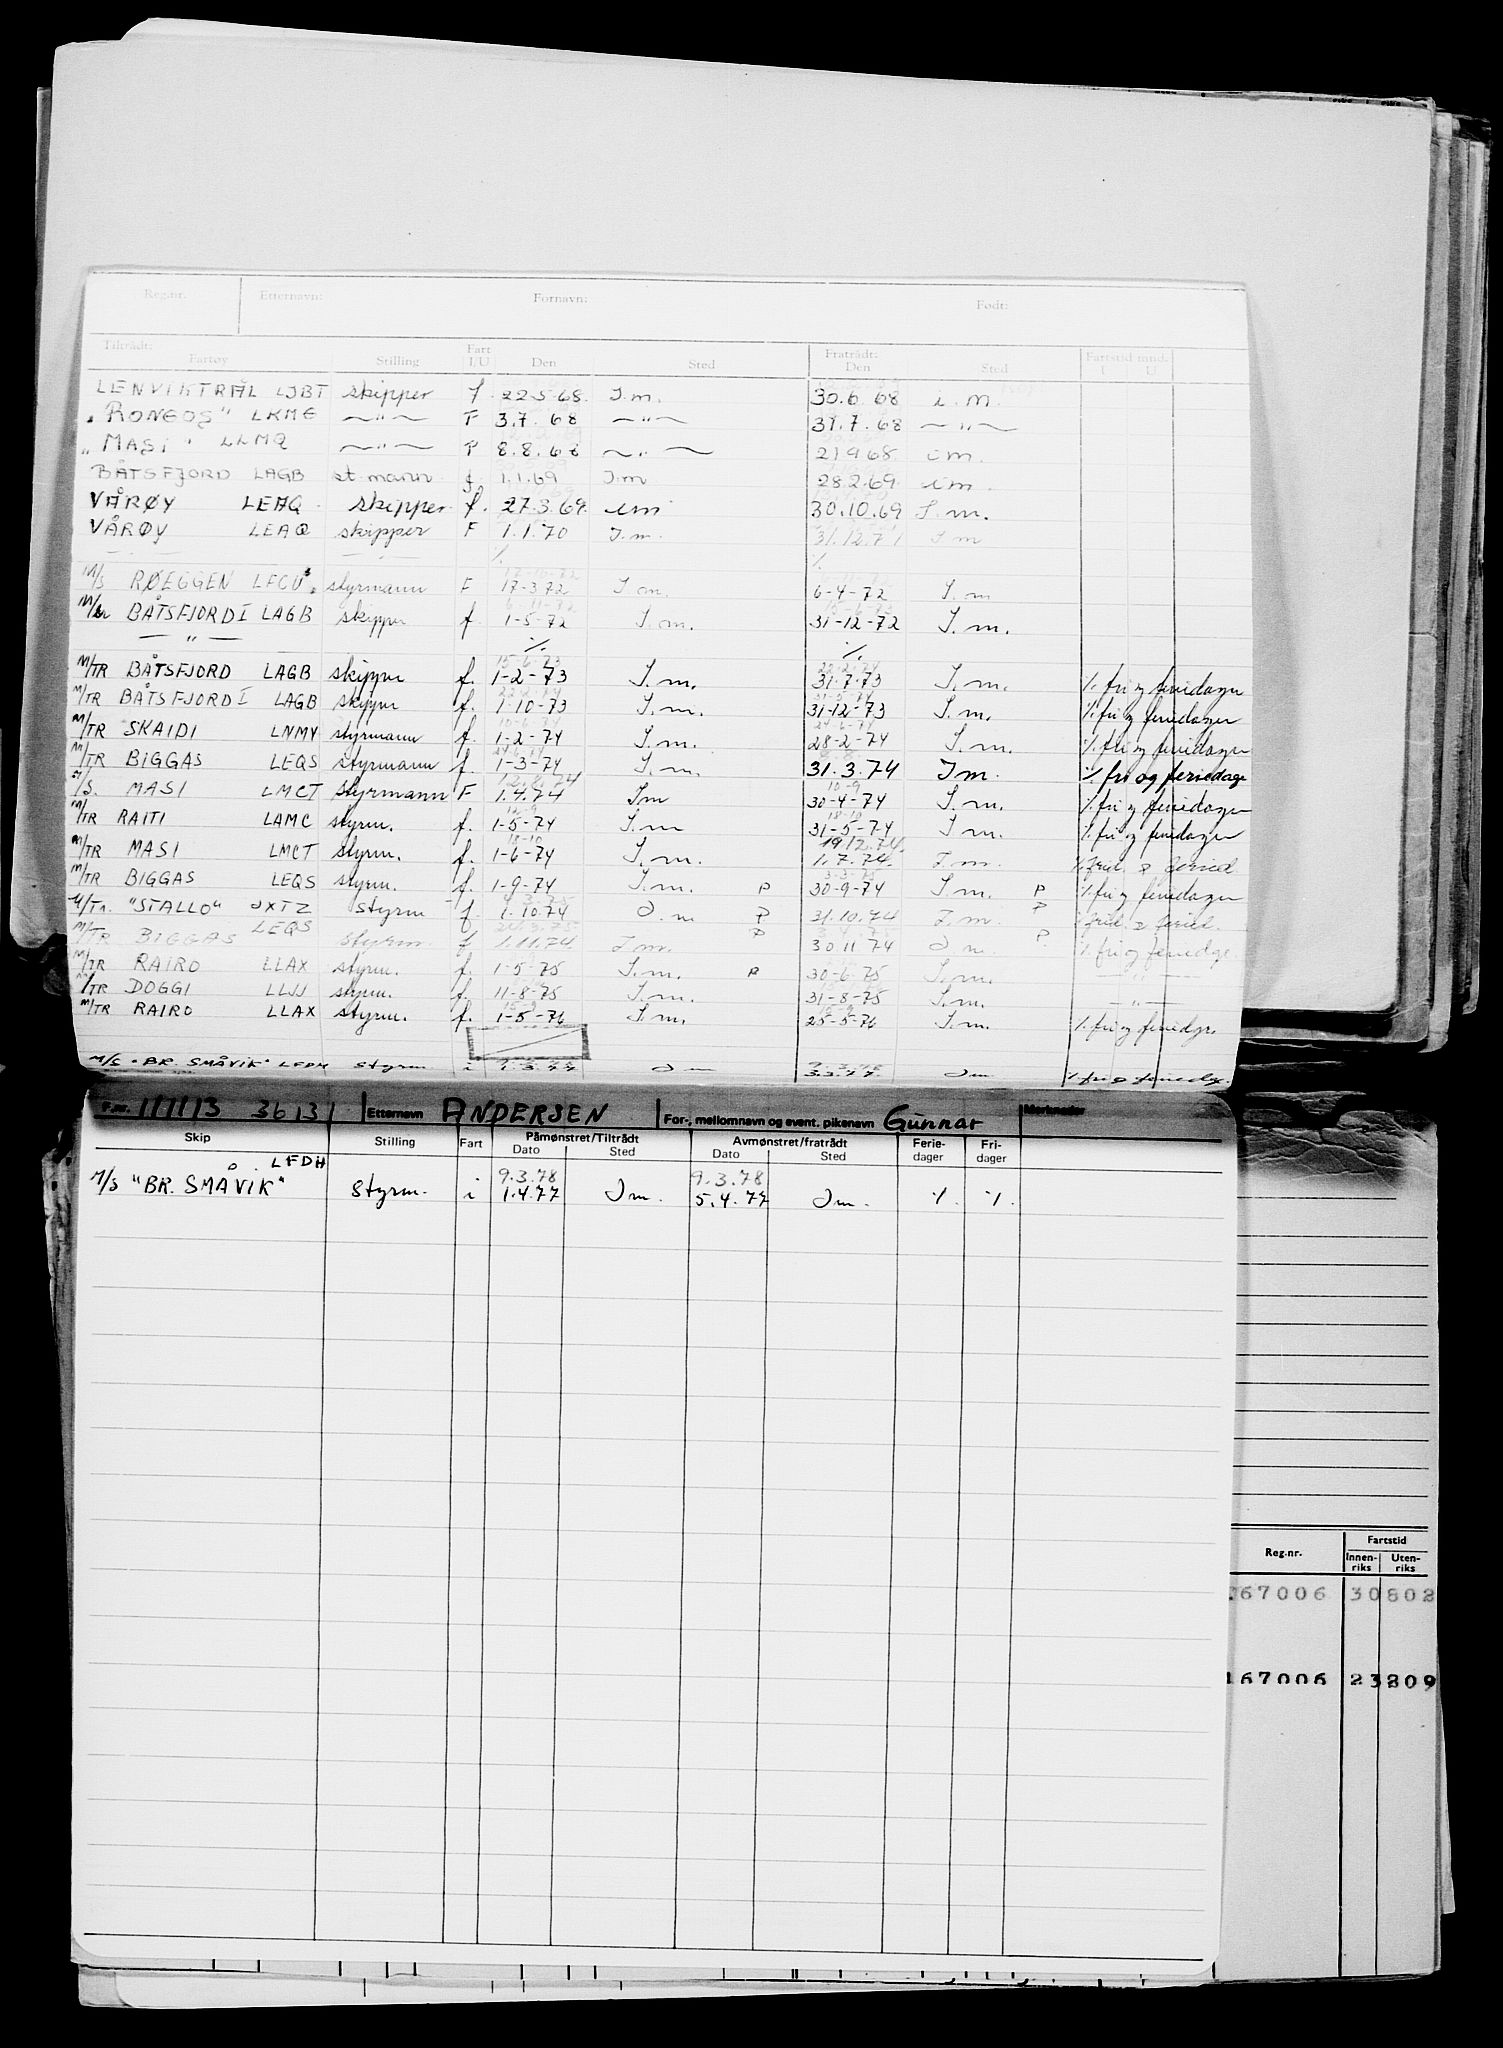 Reg.nr. Etternavn: Fornavn: Født:
Tiltrådt: Fartøy Stilling Fart I/U Den Sted Fratrådt: Den Sted Fartstid mnd. I U
LENVIKTRÅL LJBT skipper f 22.5.68. I.m. 30.6.68 i.m.
"RONGOS" LKME —"— F 3.7.68 —"— 31.7.68 —"—
"MASI" LLMQ —"— F 8.8.68 —"— 21968 im.
BÅTSFJORD LAGB st.mann f. 1.1.69 I.m 28.2.69. im.
VÅRØY LEAQ skipper f. 27.3.69. im 30.10.69 I.m.
VÅRØY LEAQ skipper F 1.1.70 I.m. 31.12.71 I m
—"— —"— % %
M/S RØEGGEN LFCU styrmann F 17-3 72 I m. 6-4-72 I.m
M/TR BÅTSFJORD I LAGB skipper f. 1-5-72 I.m. 31-12-72 I.m.
—"— % %
15-6-73 22.2.74
M/TR BÅTSFJORD LAGB skipper f. 1-2-73 I.m. 31.7.73 I.m. % fri og feriedager
22-2-74
M/TR BÅTSFJORD I LAGB skipper f. 1-10-73 I.m. 31-12-73 I.m. % fri og feriedager
10-6-74 24-6-74
M/TR SKAIDI LNMY styrmann f. 1-2-74 I.m. 28-2-74 I.m. % fri og feriedager
24-6-74
M/TR BIGGAS LEQS styrmann f. 1-3-74 I.m. 31.3.74 I m. % fri og feriedage
12.8.74 10-9
M/S. MASI LMCT styrmann F 1.4.74 I m 30-4-74 I.m. % fri og feriedager
18-10
M/TR RAITI LAMC styrm. f. 1-5-74 I.m 31-5-74 I.m. % fri og feriedager
18-10 19.12.74.
M/TR MASI LMCT styrm. f. 1-6-74 I.m. 1.7.74. I.m. % frid. & feried.
3-3-75
M/TR BIGGAS LEQS styrm. f. 1-9-74 I.m. P 30-9-74 I.m. P % fri og feriedager
M/Tr. "STALLO" JXTZ styrm f. 1.10.74 I.m P 31.10.74 I.m. P % frid. & feried.
M/TR BIGGAS LEQS styrm. f 1.11.74 I m. P 30 11 74 I m. P % fri og feriedge.
M/TR RAIRO LLAX styrm. f. 1-5-75 I.m. P 30-6-75 I.m. —"—
M/TR DOGGI LLJJ styrm. f. 11-8-75 I.m. 31-8-75 I.m. —"—
M/TR RAIRO LLAX styrm. f. 1-5-76 I.m. 25-5-76 I.m. % fri og feriedgr.
M/S "BR. SMÅVIK" LFDH styrm i 1.3.77 I m 3.3.77. I m % fri og feriedg.
F.nr. 111113 36131 Etternavn ANDERSEN For-, mellomnavn og event. pikenavn Gunnar Merknader
Skip Stilling Fart Påmønstret/Tiltrådt Dato Sted Avmønstret/fratrådt Dato Sted Ferie-dager Fri-dager
LFDH 9.3.78 9.3.78
M/S "BR. SMÅVIK" Styrm. i 1.4.77 I m. 5.4.77 I m. % %
Reg.nr. Fartstid
Innen-riks Uten-riks
67006 30802
167006 23209